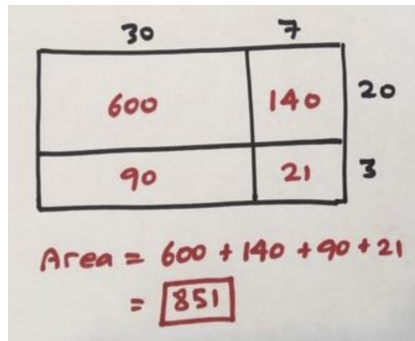 30 7
600 140 20
90 21 3
Area = 600 + 140 + 90 + 21
= 851